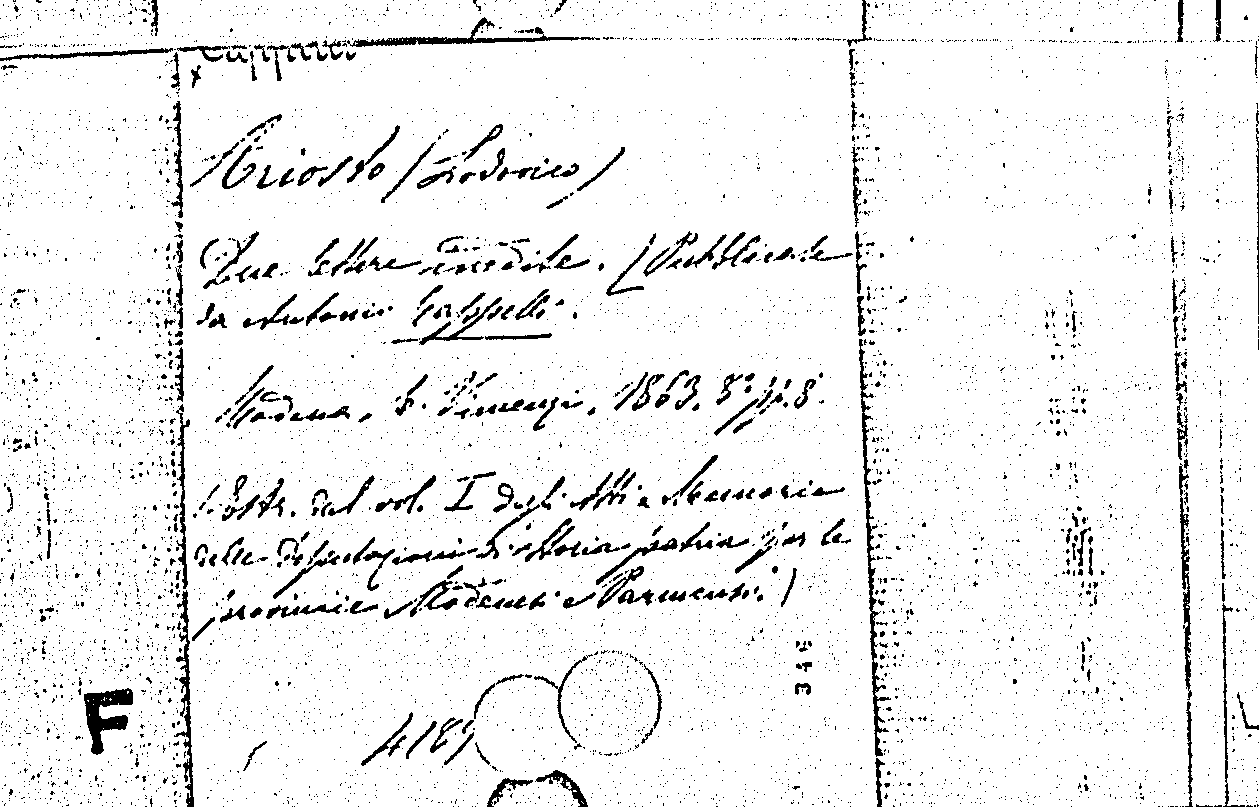 Cappelli
Ariosto (Lodovico)
Due lettere inedite. (Pubblicate
da Antonio Cappelli.
Modena, C. Vincenzi, 1863. 8º pp. 8.
(Estr. dal vol. I degli Atti e Memorie
delle deputazioni di storia patria per le
provincie Modenesi e Parmensi.)
346
F
4189